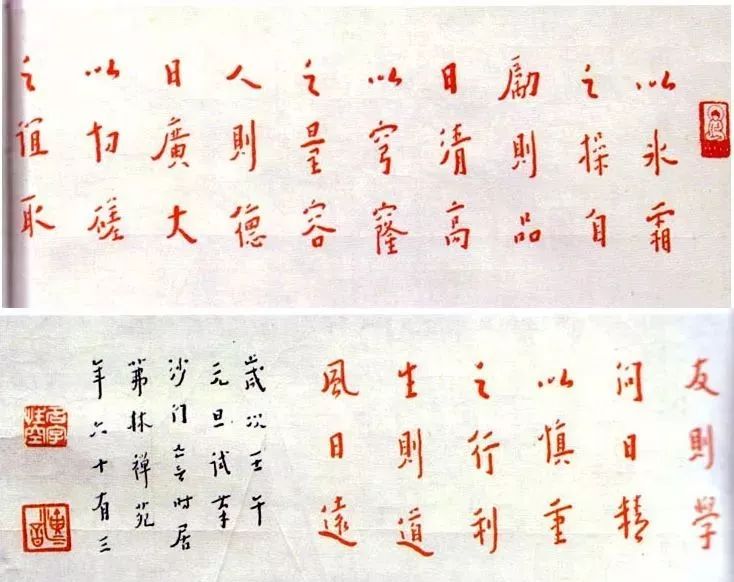 以冰霜
之操自
勵則品
日清高
以穹窿
之量容
人則德
日廣大
以切磋
之誼取
友則學
問日精
以慎重
之行利
生則道
風日遠
歲次壬午
元旦試筆
沙門亡言時居
茀林禪苑
年六十有三